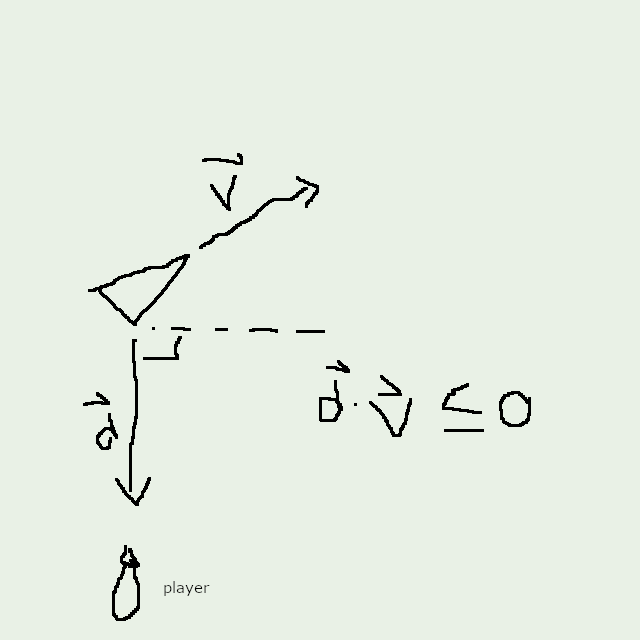 v⃗
d⃗
d⃗ · v⃗ ≤ 0
player